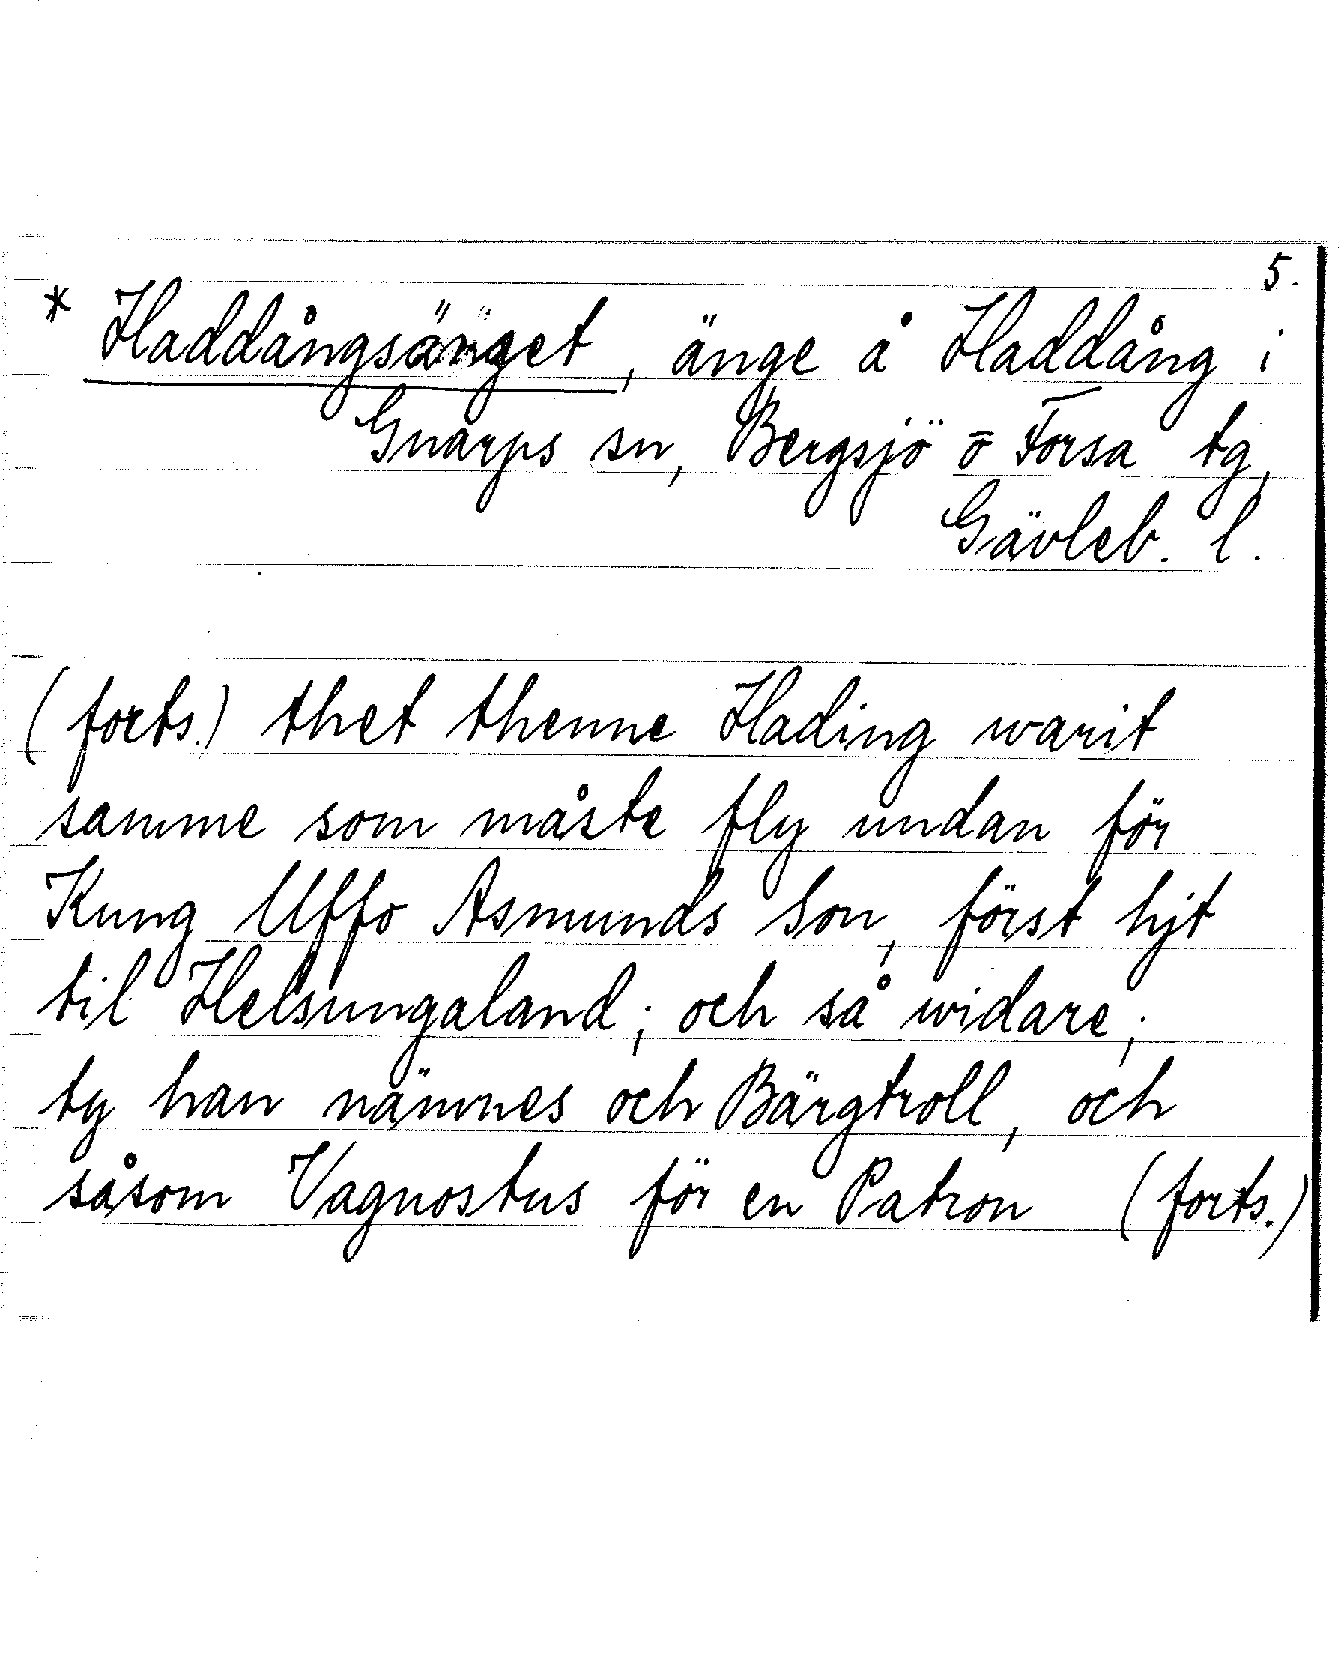 5.
* Haddångsänget, änge å Haddång i
Gnarps sn, Bergsjö o Forsa tg,
Gävleb. l.
(forts.) thet thenne Hading warit
samme som måste fly undan för
Kung Uffo Asmunds Son, först hjt
til Helsungaland; och så widare;
ty han nämnes och Bärgtroll, och
såsom Vagnostus för en Patron (forts.)